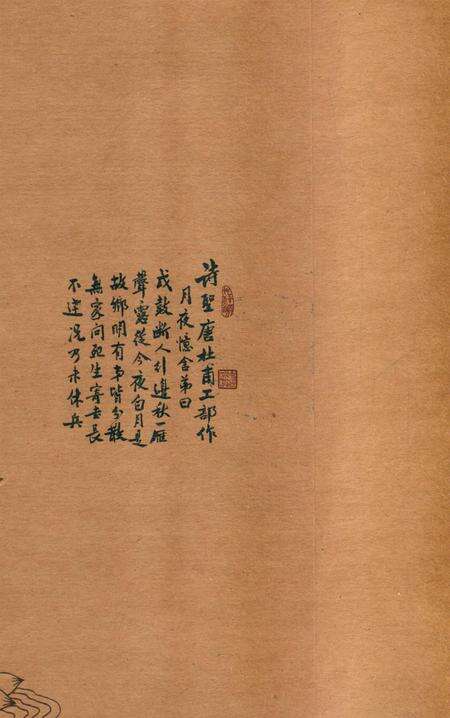 詩聖唐杜甫工部作
月夜憶舍弟曰
戍鼓斷人行邊秋一雁
聲露從今夜白月是
故鄉明有弟皆分散
無家問死生寄書長
不達況乃未休兵